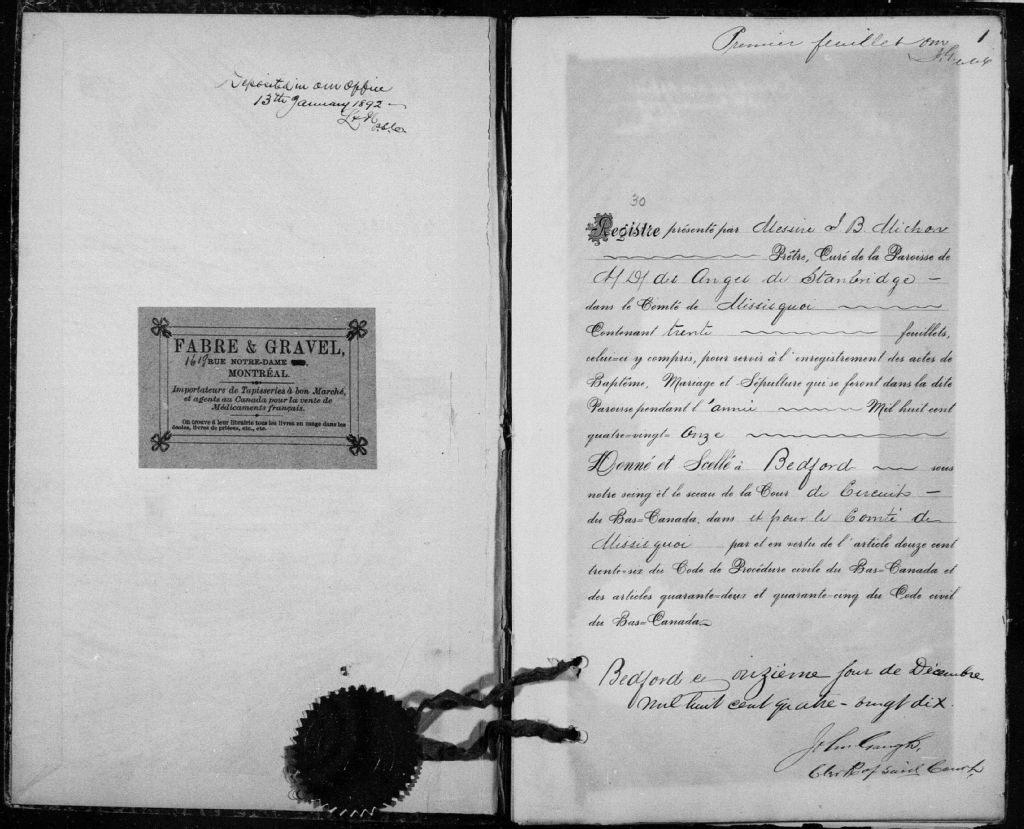 Deposited in our office
13th January 1892 —
FABRE & GRAVEL,
1619 RUE NOTRE-DAME
MONTRÉAL.
Importateurs de Tapisseries à bon Marché,
et agents au Canada pour la vente de
Médicaments français.
On trouve à leur librairie tous les livres en usage dans les
écoles, livres de prières, etc., etc.
Premier feuillet
1
30
Registre présenté par Messire J B. Michon
Prêtre, Curé de la Paroisse de
N D des Anges de Stanbridge —
dans le Comté de Missisquoi
Contenant trente feuillets,
celui-ci y compris, pour servir à l'enregistrement des actes de
Baptême, Mariage et Sépulture qui se feront dans la dite
Paroisse pendant l'année Mil huit cent
quatre=vingt= Onze
Donné et Scellé à Bedford sous
notre seing et le sceau de la Cour de Circuit —
du Bas=Canada, dans et pour le Comté de
Missisquoi par et en vertu de l'article douze cent
trente=six du Code de Procédure civile du Bas=Canada et
des articles quarante=deux et quarante=cinq du Code civil
du Bas=Canada.
Bedford ce onzième jour de Décembre
mil huit cent quatre-vingt dix.
John Gough,
Clerk of said Court,